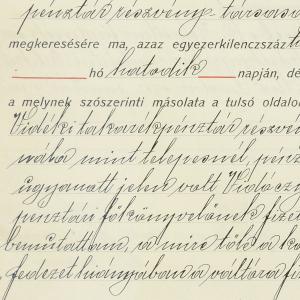 pénztár részvény-társasá
megkeresésére ma, azaz egyezerkilenczszázt
hó hatodik napján, dé
a melynek szószerinti másolata a tulsó oldalo
Vidéki takarékpénztár részvé
nába mint telepesnél, pénz
ugyanott jelen volt Vidóczy
pénztári főkönyvelőnek fize
bemutattam, a mire tőle a ka
fedezet hiányában a váltóra fi